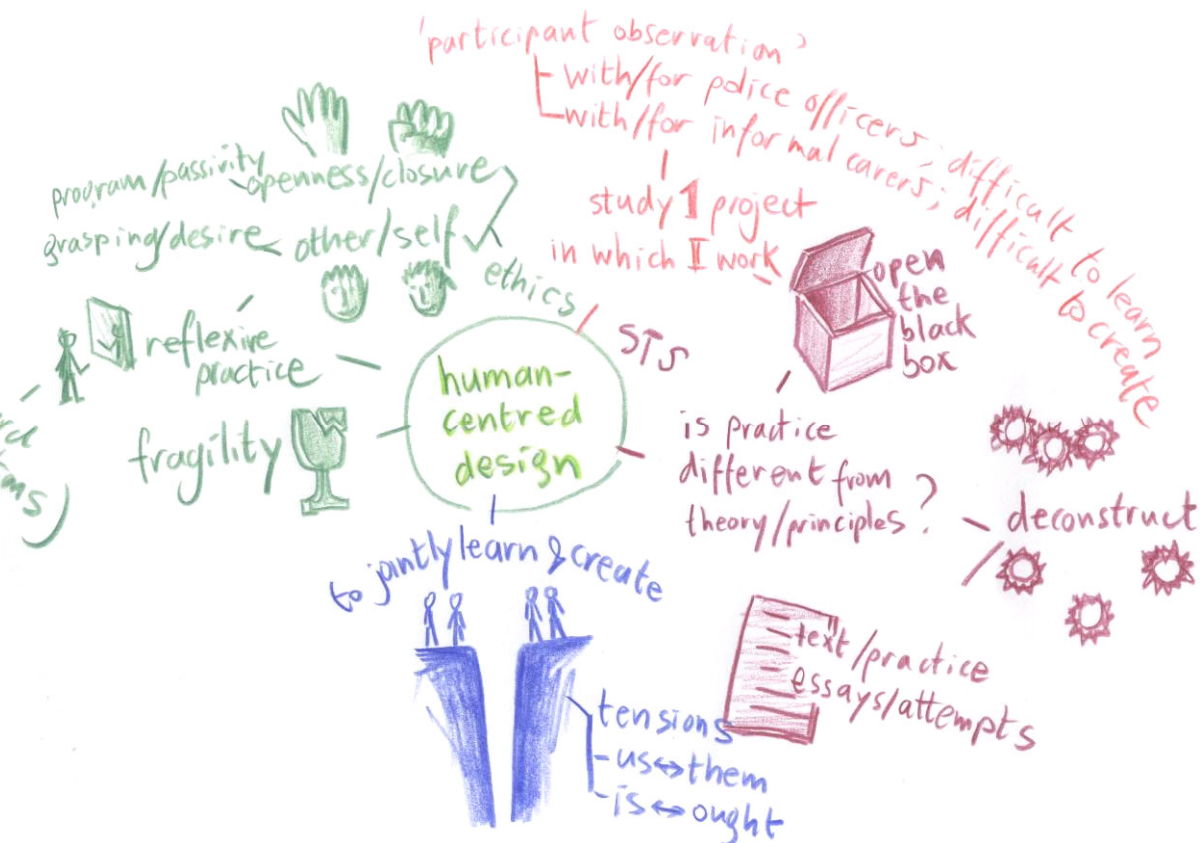 'participant observation'
with/for police officers; difficult to learn
with/for informal carers; difficult to create
study 1 project
in which I work
open
the
black
box
STS
is practice
different from
theory/principles?
deconstruct
text/practice
essays/attempts
human-
centred
design
ethics
program/passivity
openness/closure
grasping/desire
other/self
reflexive
practice
fragility
to jointly learn & create
tensions
-us↔them
-is↔ought